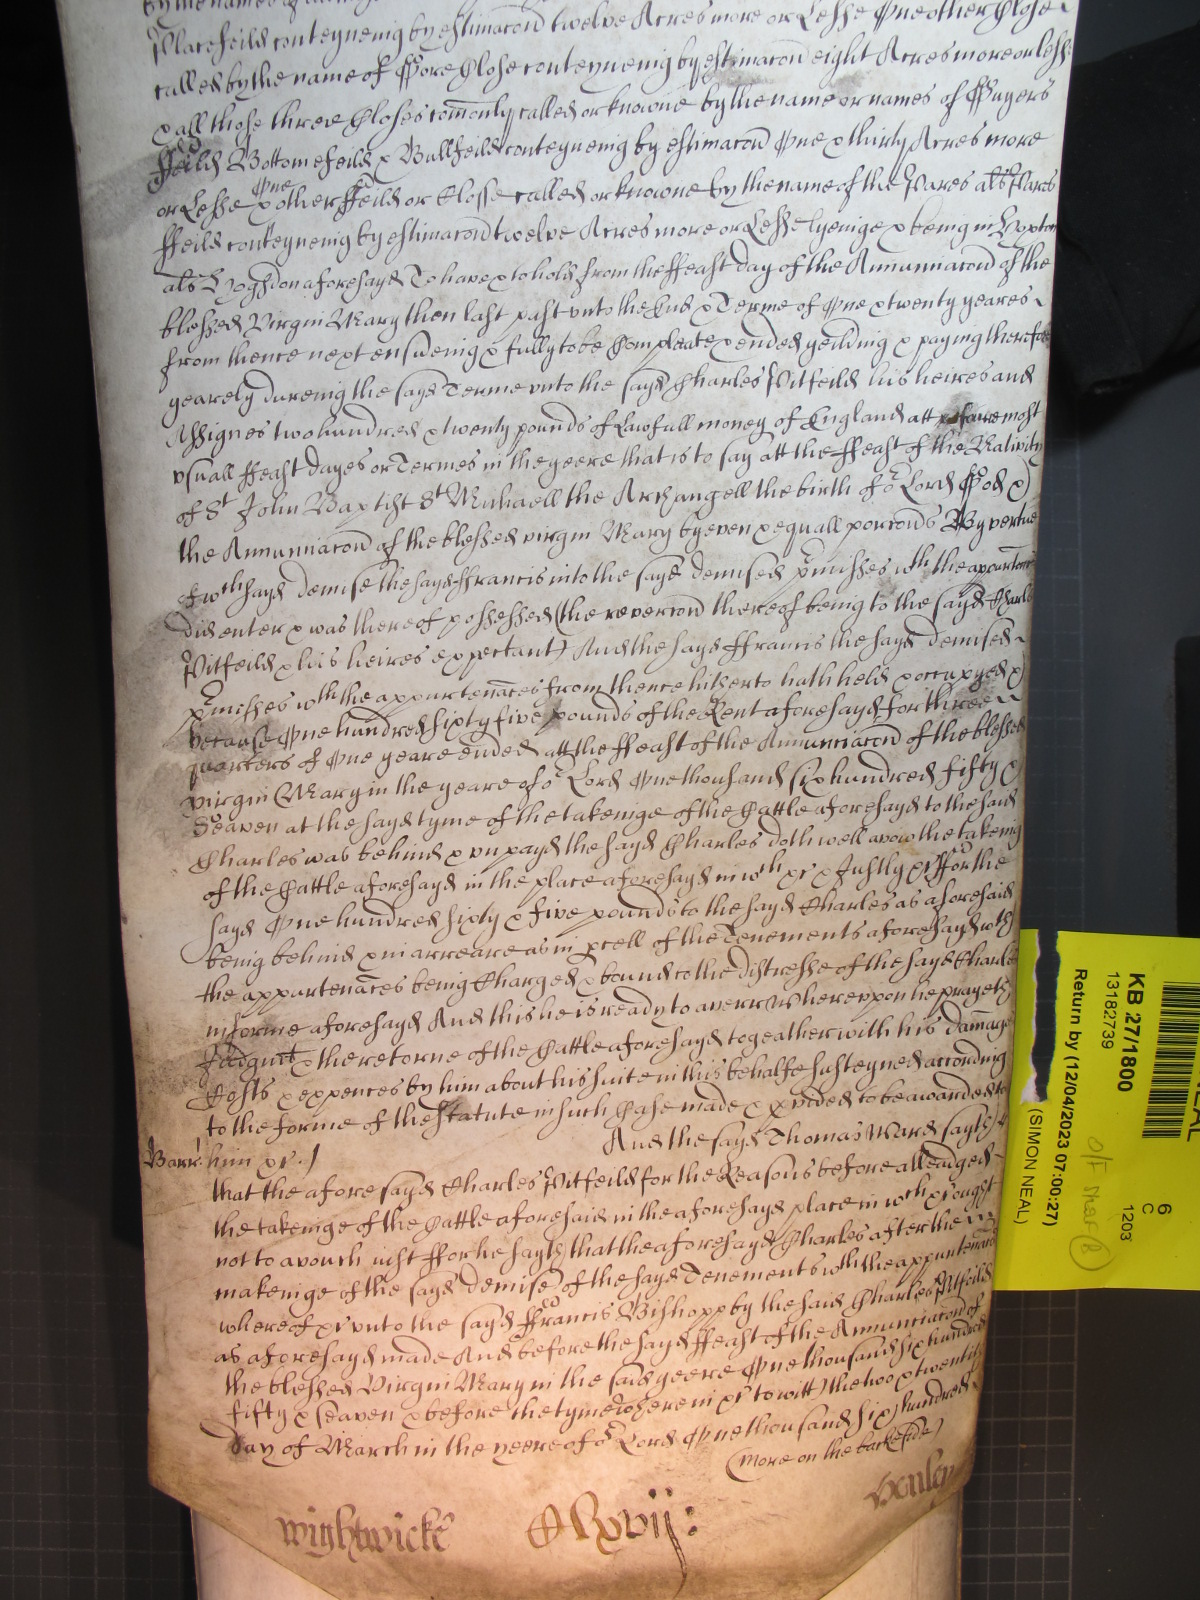 by the names of
Placefeild conteyneing by estimacon twelve Acres more or Lesse One other Close
called by the name of ffore Close conteyneing by estimacon eight Acres more or lesse
& all those three Closes comonly called or knowne by the name or names of
ffeild Bottomefeild & Bullfeild conteyneing by estimacon One & thirty Acres more
or Lesse One & other ffeild or Closse called or knowne by the name of the Pares als Pares
ffeild conteyneing by estimacon twelve Acres more or Lesse lyeinge & being in Hoxton
als Hogsdon aforesayd To have & to hold from the ffeast day of the Annunciacon of the
blessed Virgin Mary then last past unto the End & Terme of One & twenty yeares
from thence next ensueing & fully to be Compleate & ended yeilding & paying therefore
yearely dureing the sayd Terme unto the sayd Charles Pitfeild his heires and
Assignes two hundred & twenty pounds of Lawfull money of England att foure most
usuall ffeast dayes or Termes in the yeere that is to say att the ffeast of the Nativity
of St John Baptist St Michaell the Archangell the birth of or Lord God &
the Annunciacon of the blessed virgin Mary by even & equall porcons By vertue
of wch sayd demise the sayd ffrancis into the sayd demised pmisses wth the appurtences
did enter & was thereof possessed (the revercon thereof being to the sayd Charles
Pitfeild & his heires expectant) And the sayd ffrancis the sayd demised
pmisses wth the appurtenaces from thence hitherto hath held & occupyed &
because One hundred sixty five pounds of the Rent aforesayd for three
quarters of One yeare ended att the ffeast of the Annunciacon of the blessed
virgin Mary in the yeare of or Lord One thousand six hundred fifty &
Seaven at the sayd tyme of the takeinge of the Cattle aforesayd to the said
Charles was behind & unpayd the sayd Charles doth well avow the takeing
of the Cattle aforesayd in the place aforesayd in wch &c & Justly &c ffor the
sayd One hundred sixty & five pounds to the sayd Charles as aforesaid
being behind & in arreare as in pcell of the Tenements aforesayd wth
the appurtenaces being Charged & bound to the distresse of the sayd Charles
in forme aforesayd And this he is ready to averr whereupon he prayeth
Judgmt & the retorne of the Cattle aforesayd togeather with his damage
Costs & expences by him about his suite in this behalfe susteyned according
to the forme of the Statute in such Case made & pvided to be awarded to
him &c./ And the sayd Thomas Ward sayth
Barr
that the aforesayd Charles Pitfeild for the Reasons before alleadged
the takeinge of the Cattle aforesaid in the aforesayd place in wch &c ought
not to avouch iust ffor he sayth that the aforesayd Charles after the
makeinge of the sayd demise of the sayd Tenements wth the appurtenances
whereof &c unto the sayd ffrancis Bishopp by the said Charles Pitfeild
as aforesayd made And before the sayd ffeast of the Annunciacon of
the blessed Virgin Mary in the said yeere One thousand six hundred
fifty & seaven & before the tyme wherein &c to witt the two & twentith
day of March in the yeere of or Lord One thousand six hundred
(more on the backeside)
wightwicke
Henley
KB 27/1800
13182739
Return by (12/04/2023 07:00:27)
(SIMON NEAL)
6
C
1203